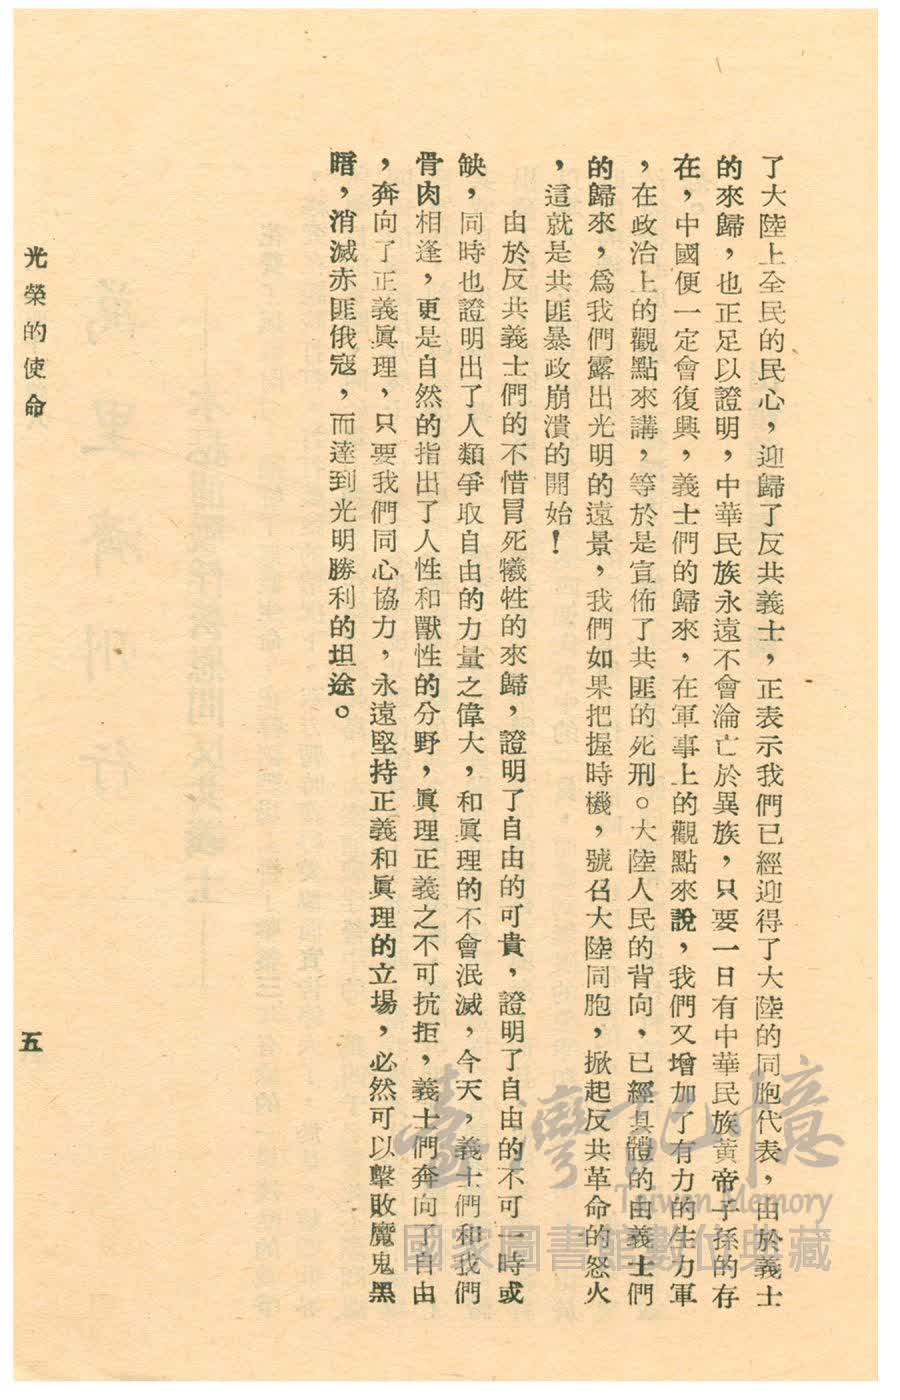 了大陸上全民的民心，迎歸了反共義士，正表示我們已經迎得了大陸的同胞代表，由於義士
的來歸，也正足以證明，中華民族永遠不會淪亡於異族，只要一日有中華民族黃帝子孫的存
在，中國便一定會復興，義士們的歸來，在軍事上的觀點來說，我們又增加了有力的生力軍
，在政治上的觀點來講，等於是宣佈了共匪的死刑。大陸人民的背向，已經具體的由義士們
的歸來，爲我們露出光明的遠景，我們如果把握時機，號召大陸同胞，掀起反共革命的怒火
，這就是共匪暴政崩潰的開始！
由於反共義士們的不惜冒死犧牲的來歸，證明了自由的可貴，證明了自由的不可一時或
缺，同時也證明出了人類爭取自由的力量之偉大，和眞理的不會泯滅，今天，義士們和我們
骨肉相逢，更是自然的指出了人性和獸性的分野，眞理正義之不可抗拒，義士們奔向了自由
，奔向了正義眞理，只要我們同心協力，永遠堅持正義和眞理的立場，必然可以擊敗魔鬼黑
暗，消滅赤匪俄寇，而達到光明勝利的坦途。
光榮的使命
五
臺灣記憶
Taiwan Memory
國家圖書館數位典藏